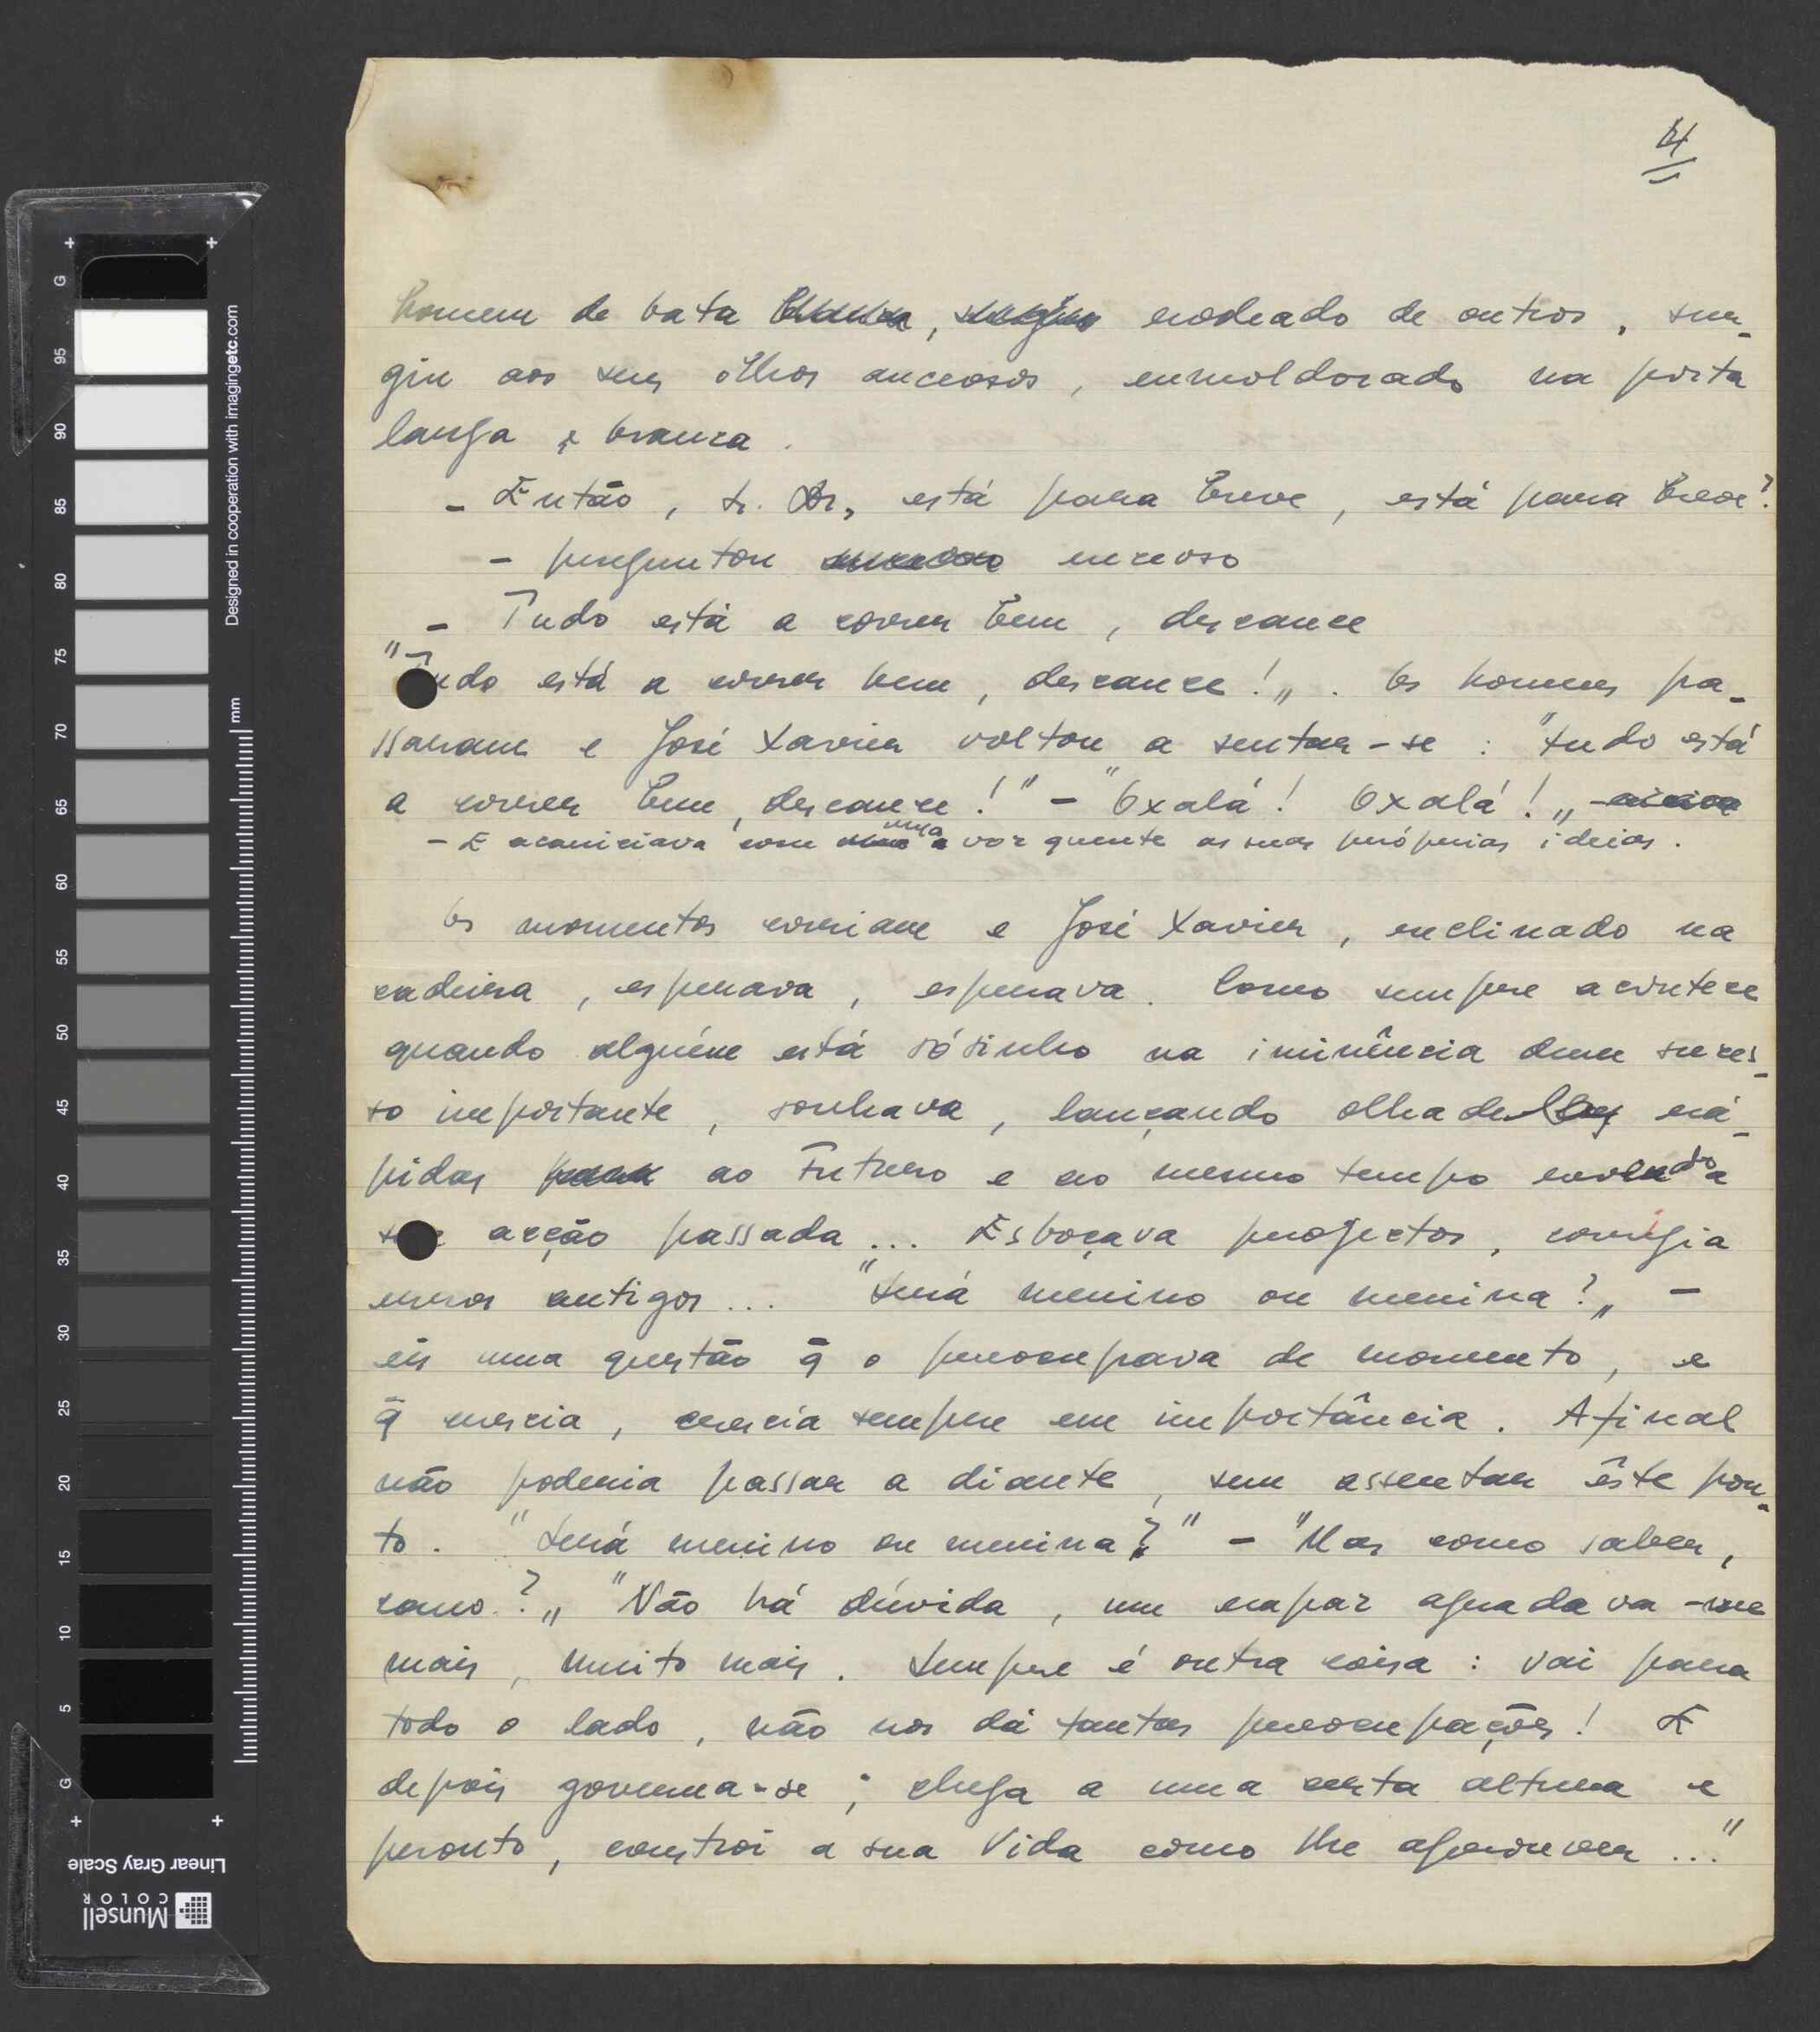 4
homem de bata branca, surgiu rodeado de outros, sur-
giu aos seus olhos anceosos, enmoldorado na porta
larga e branca.
- Então, sr. Dr., está para breve, está para breve?
- preguntou nervoso
- Tudo está a correr bem, descance
"Tudo está a correr bem, descance!„. Os homens pa-
ssaram e José Xavier voltou a sentar-se: "tudo está
a correr bem, descance!" - "Oxalá! Oxalá!„
- E acariciava com uma voz quente as suas próprias ideias.
Os momentos corriam e José Xavier, reclinado na
cadeira, esperava, esperava. Como sempre acontece
quando alguém está sósinho na iminência dum suces-
so importante, sonhava, lançando olhadelas rá-
pidas ao Futuro e ao mesmo tempo revendo a
sua acção passada... Esboçava projectos, corrigia
erros antigos... "Será menino ou menina?„ -
eis uma questão q̃ o preocupava de momento, e
q̃ crescia, crescia sempre em importância. Afinal
não poderia passar a diante, sem assentar êste pon-
to. "Será menino ou menina?" - "Mas como saber,
como?„ "Não há dúvida, um rapaz agradava-me
mais, muito mais. Sempre é outra coisa: vai para
todo o lado, não nos dá tantas preocupações! E
depois governa-se; chega a uma certa altura e
pronto, constroi a sua Vida como lhe aprouver..."
G
95
90
85
80
75
70
65
60
55
50
45
40
35
30
25
20
15
10
5
G
mm
Designed in cooperation with imagingetc.com
Linear Gray Scale
Munsell
COLOR